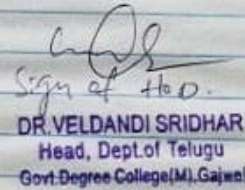 Sign of HoD.
DR.VELDANDI SRIDHAR
Head, Dept.of Telugu
Govt.Degree College(M).Gajwel